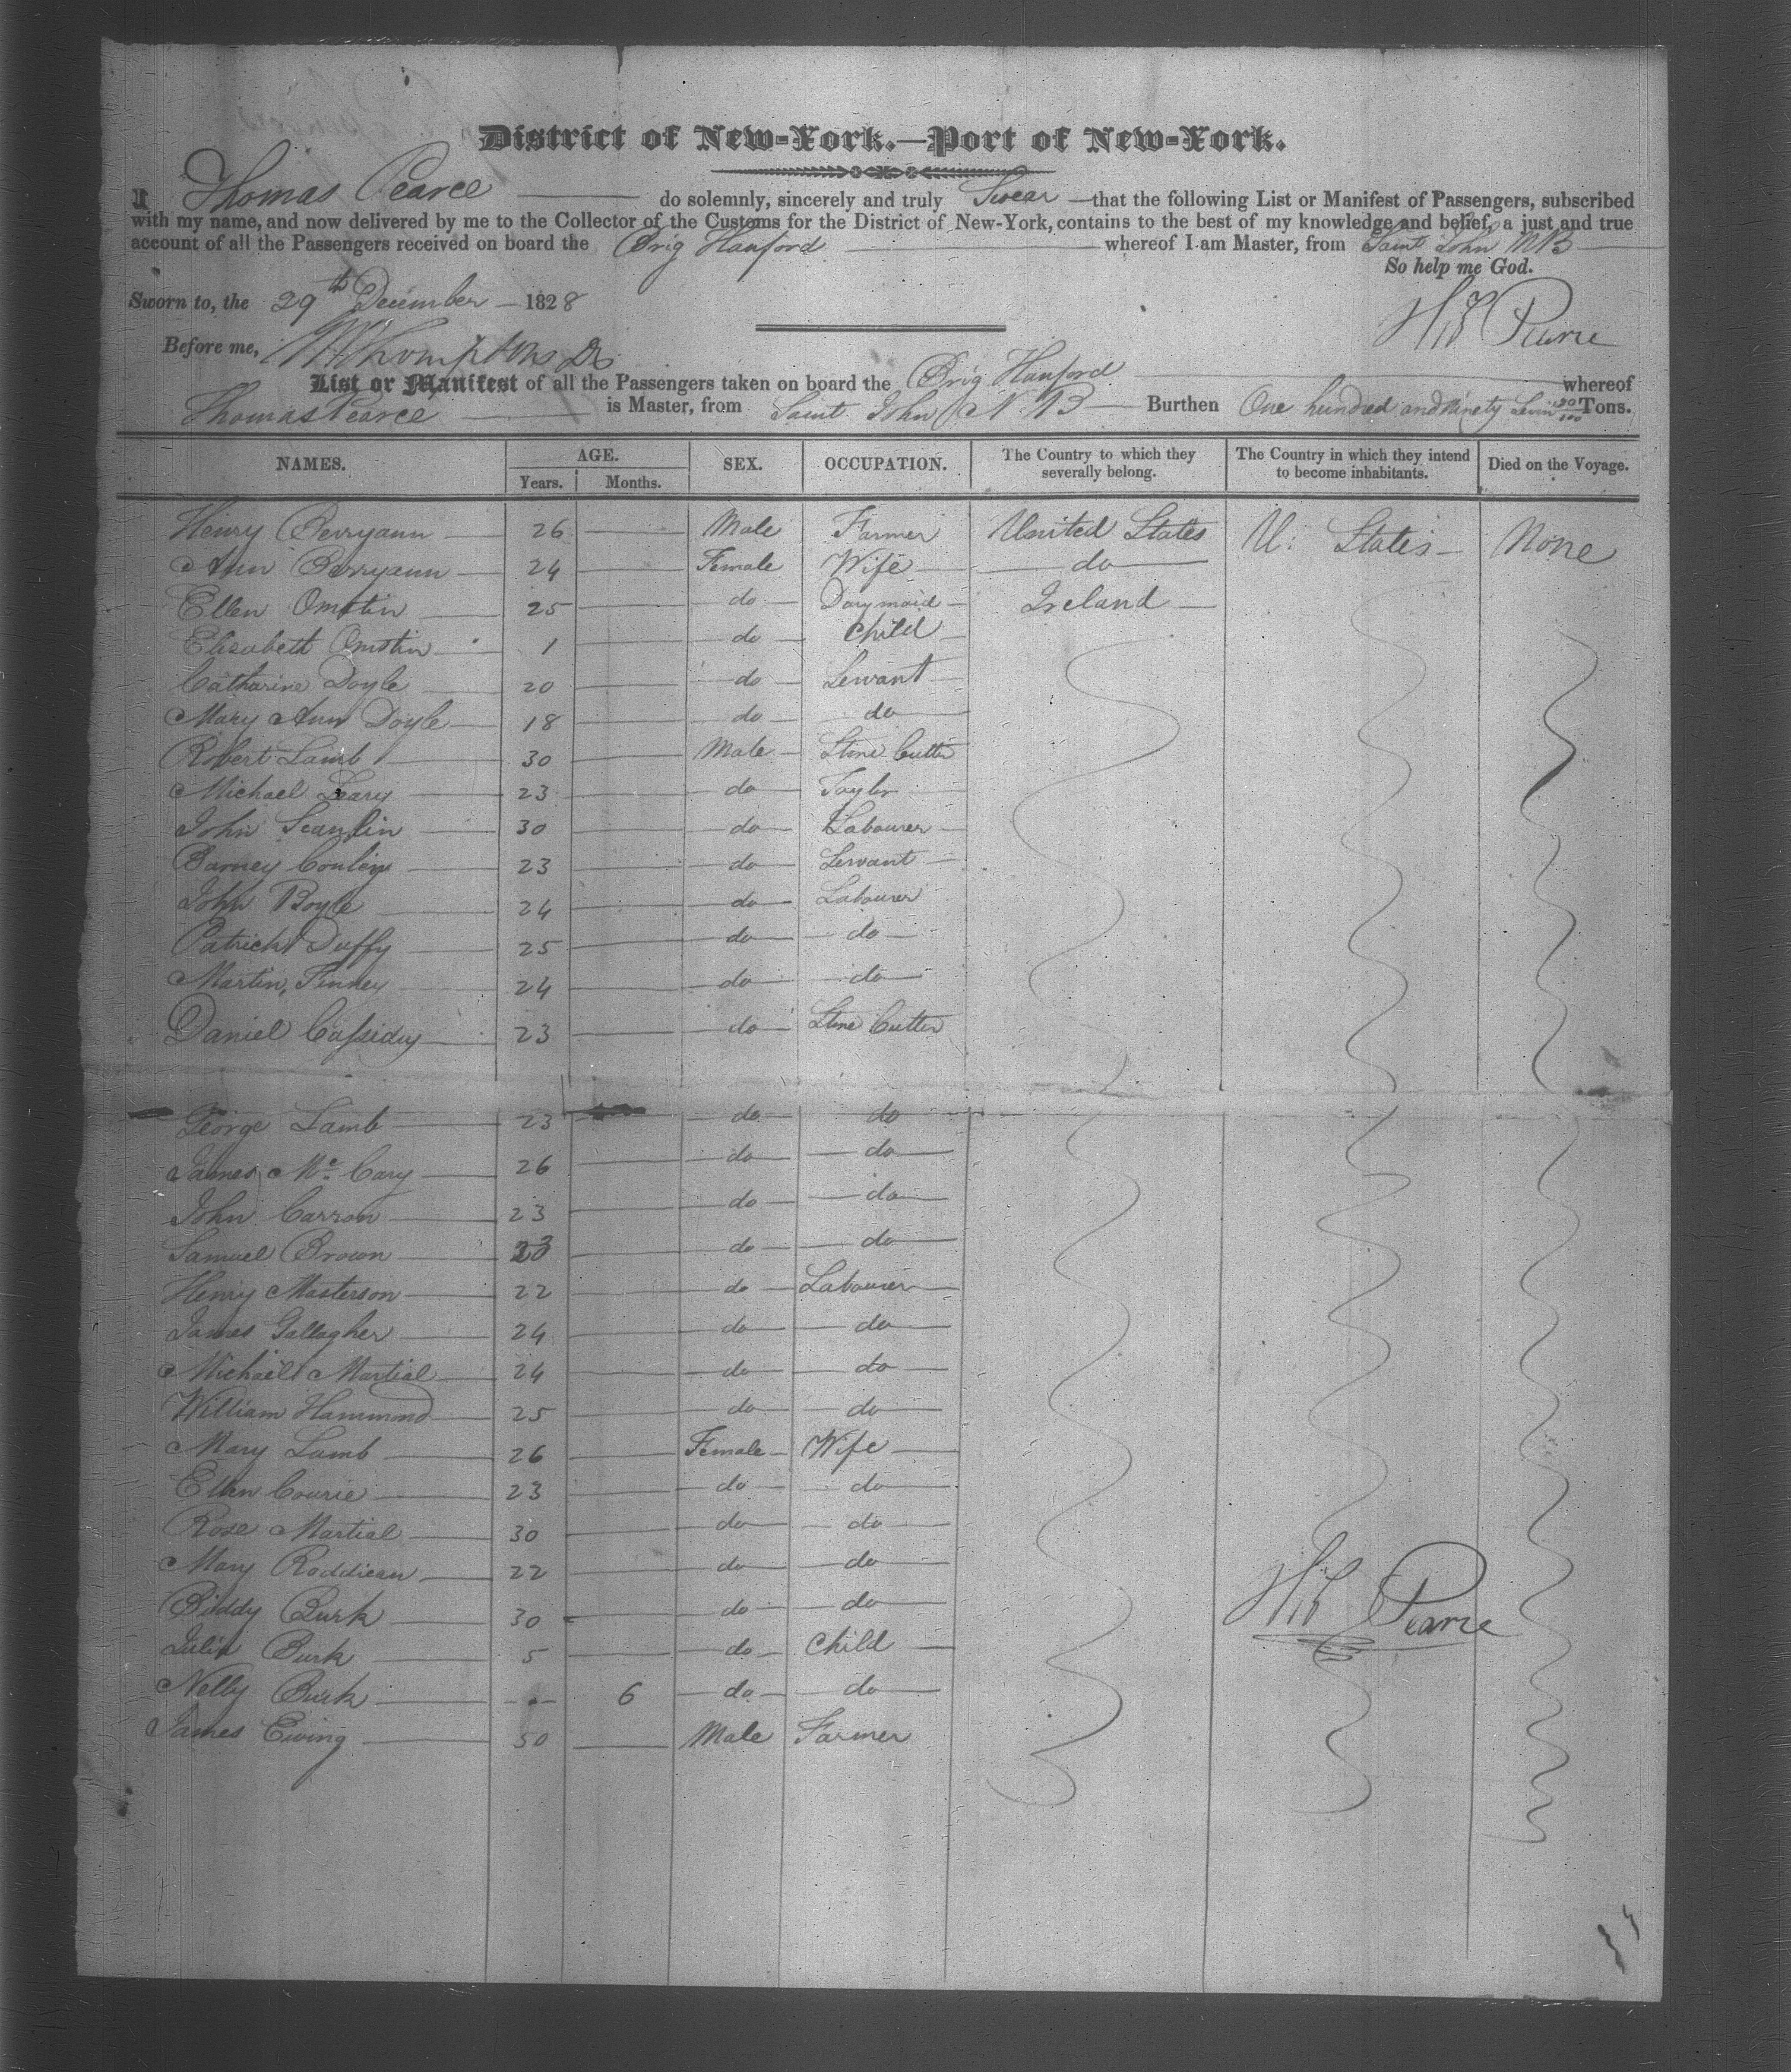 District of New-York.—Port of New-York.
I Thomas Pearce do solemnly, sincerely and truly Swear that the following List or Manifest of Passengers, subscribed
with my name, and now delivered by me to the Collector of the Customs for the District of New-York, contains to the best of my knowledge and belief, a just and true
account of all the Passengers received on board the Brig Hanford whereof I am Master, from Saint John NB
So help me God.
Sworn to, the 29th December 1828
Pearce
Before me,
List or Manifest of all the Passengers taken on board the Brig Hanford whereof
Thomas Pearce is Master, from Saint John N.B Burthen One hundred and Ninety Seven 20/100 Tons.
NAMES. AGE. SEX. OCCUPATION. The Country to which they severally belong. The Country in which they intend to become inhabitants. Died on the Voyage.
Years. Months.
Henry Berryann 26 Male Farmer United States U: States None
Ann Berryann 24 Female Wife do
Ellen 25 do Darymaid Ireland
Elisabett 1 do Child
Catharine Doyle 20 do Servant
Mary Ann Doyle 18 do do
Robert Lamb 30 Male Stone Cutter
Michael Leary 23 do Taylor
John Scanlin 30 do Labourer
Barney Conley 23 do Servant
John Boyle 24 do Labourer
Patrick Duffy 25 do do
Martin Finney 24 do do
Daniel Cassidy 23 do Stone Cutter
George Lamb 23 do do
James Mc Cary 26 do do
John Carron 23 do do
Samuel Brown 23 do do
Henry Masterson 22 do Labourer
James Gallagher 24 do do
Michaell Martial 24 do do
William Hammond 25 do do
Mary Lamb 26 Female Wife
Ellen Courie 23 do do
Rose Martial 30 do do
Mary Roddican 22 do do
Biddy Burk 30 do do
Pearce
Julia Burk 5 do Child
Nelly Burk 6 do do
James Ewing 50 Male Farmer